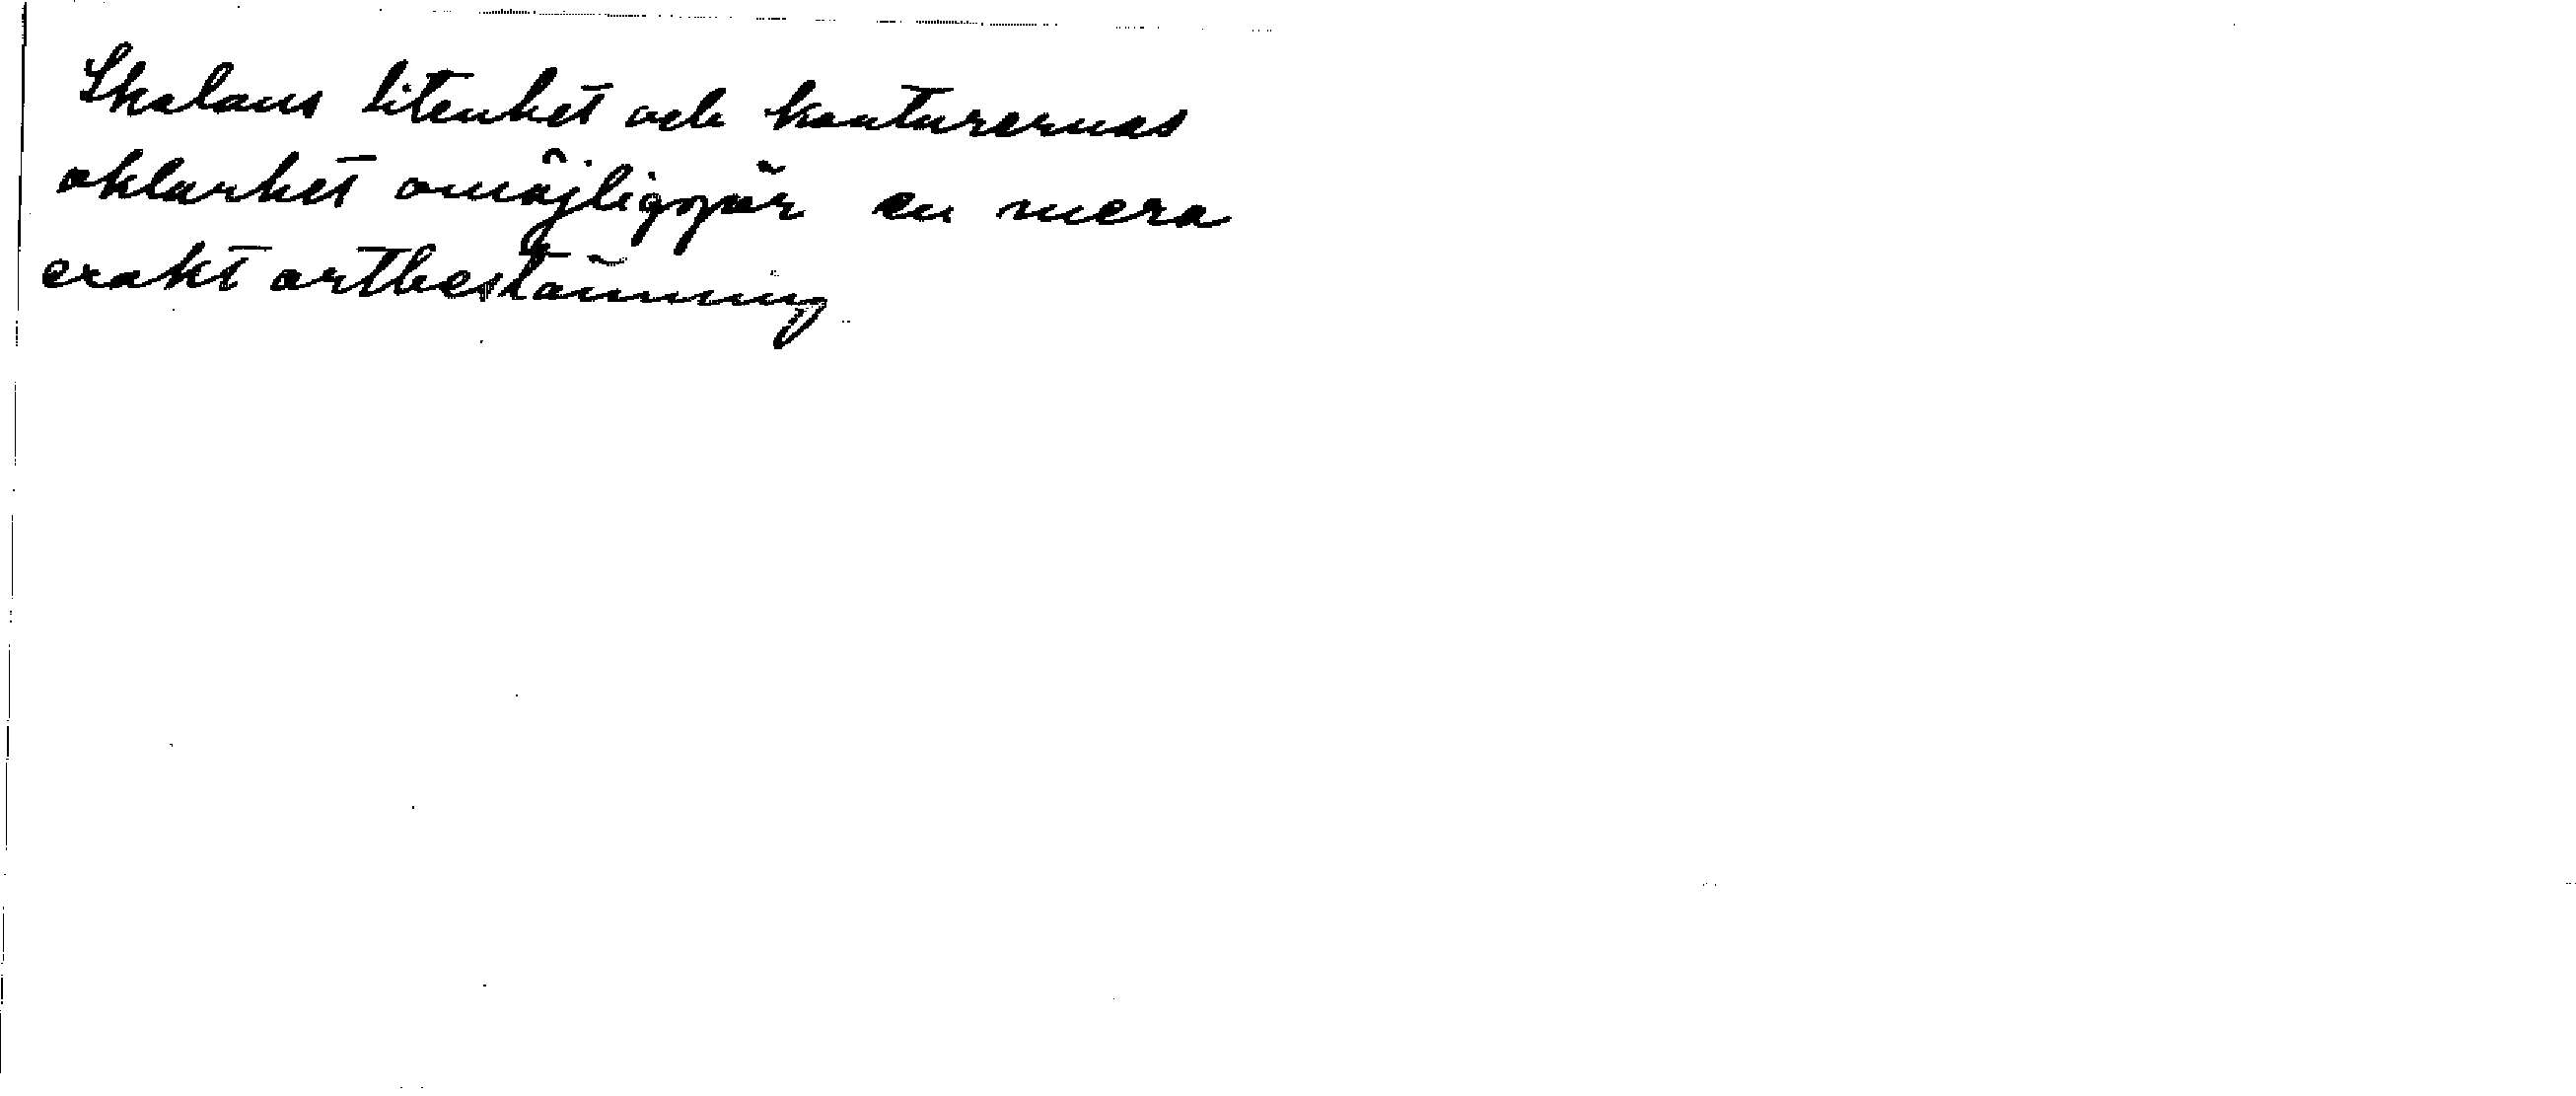 Skalans litenhet och konturernas
oklarhet omöjliggör en mera
exakt artbestämning